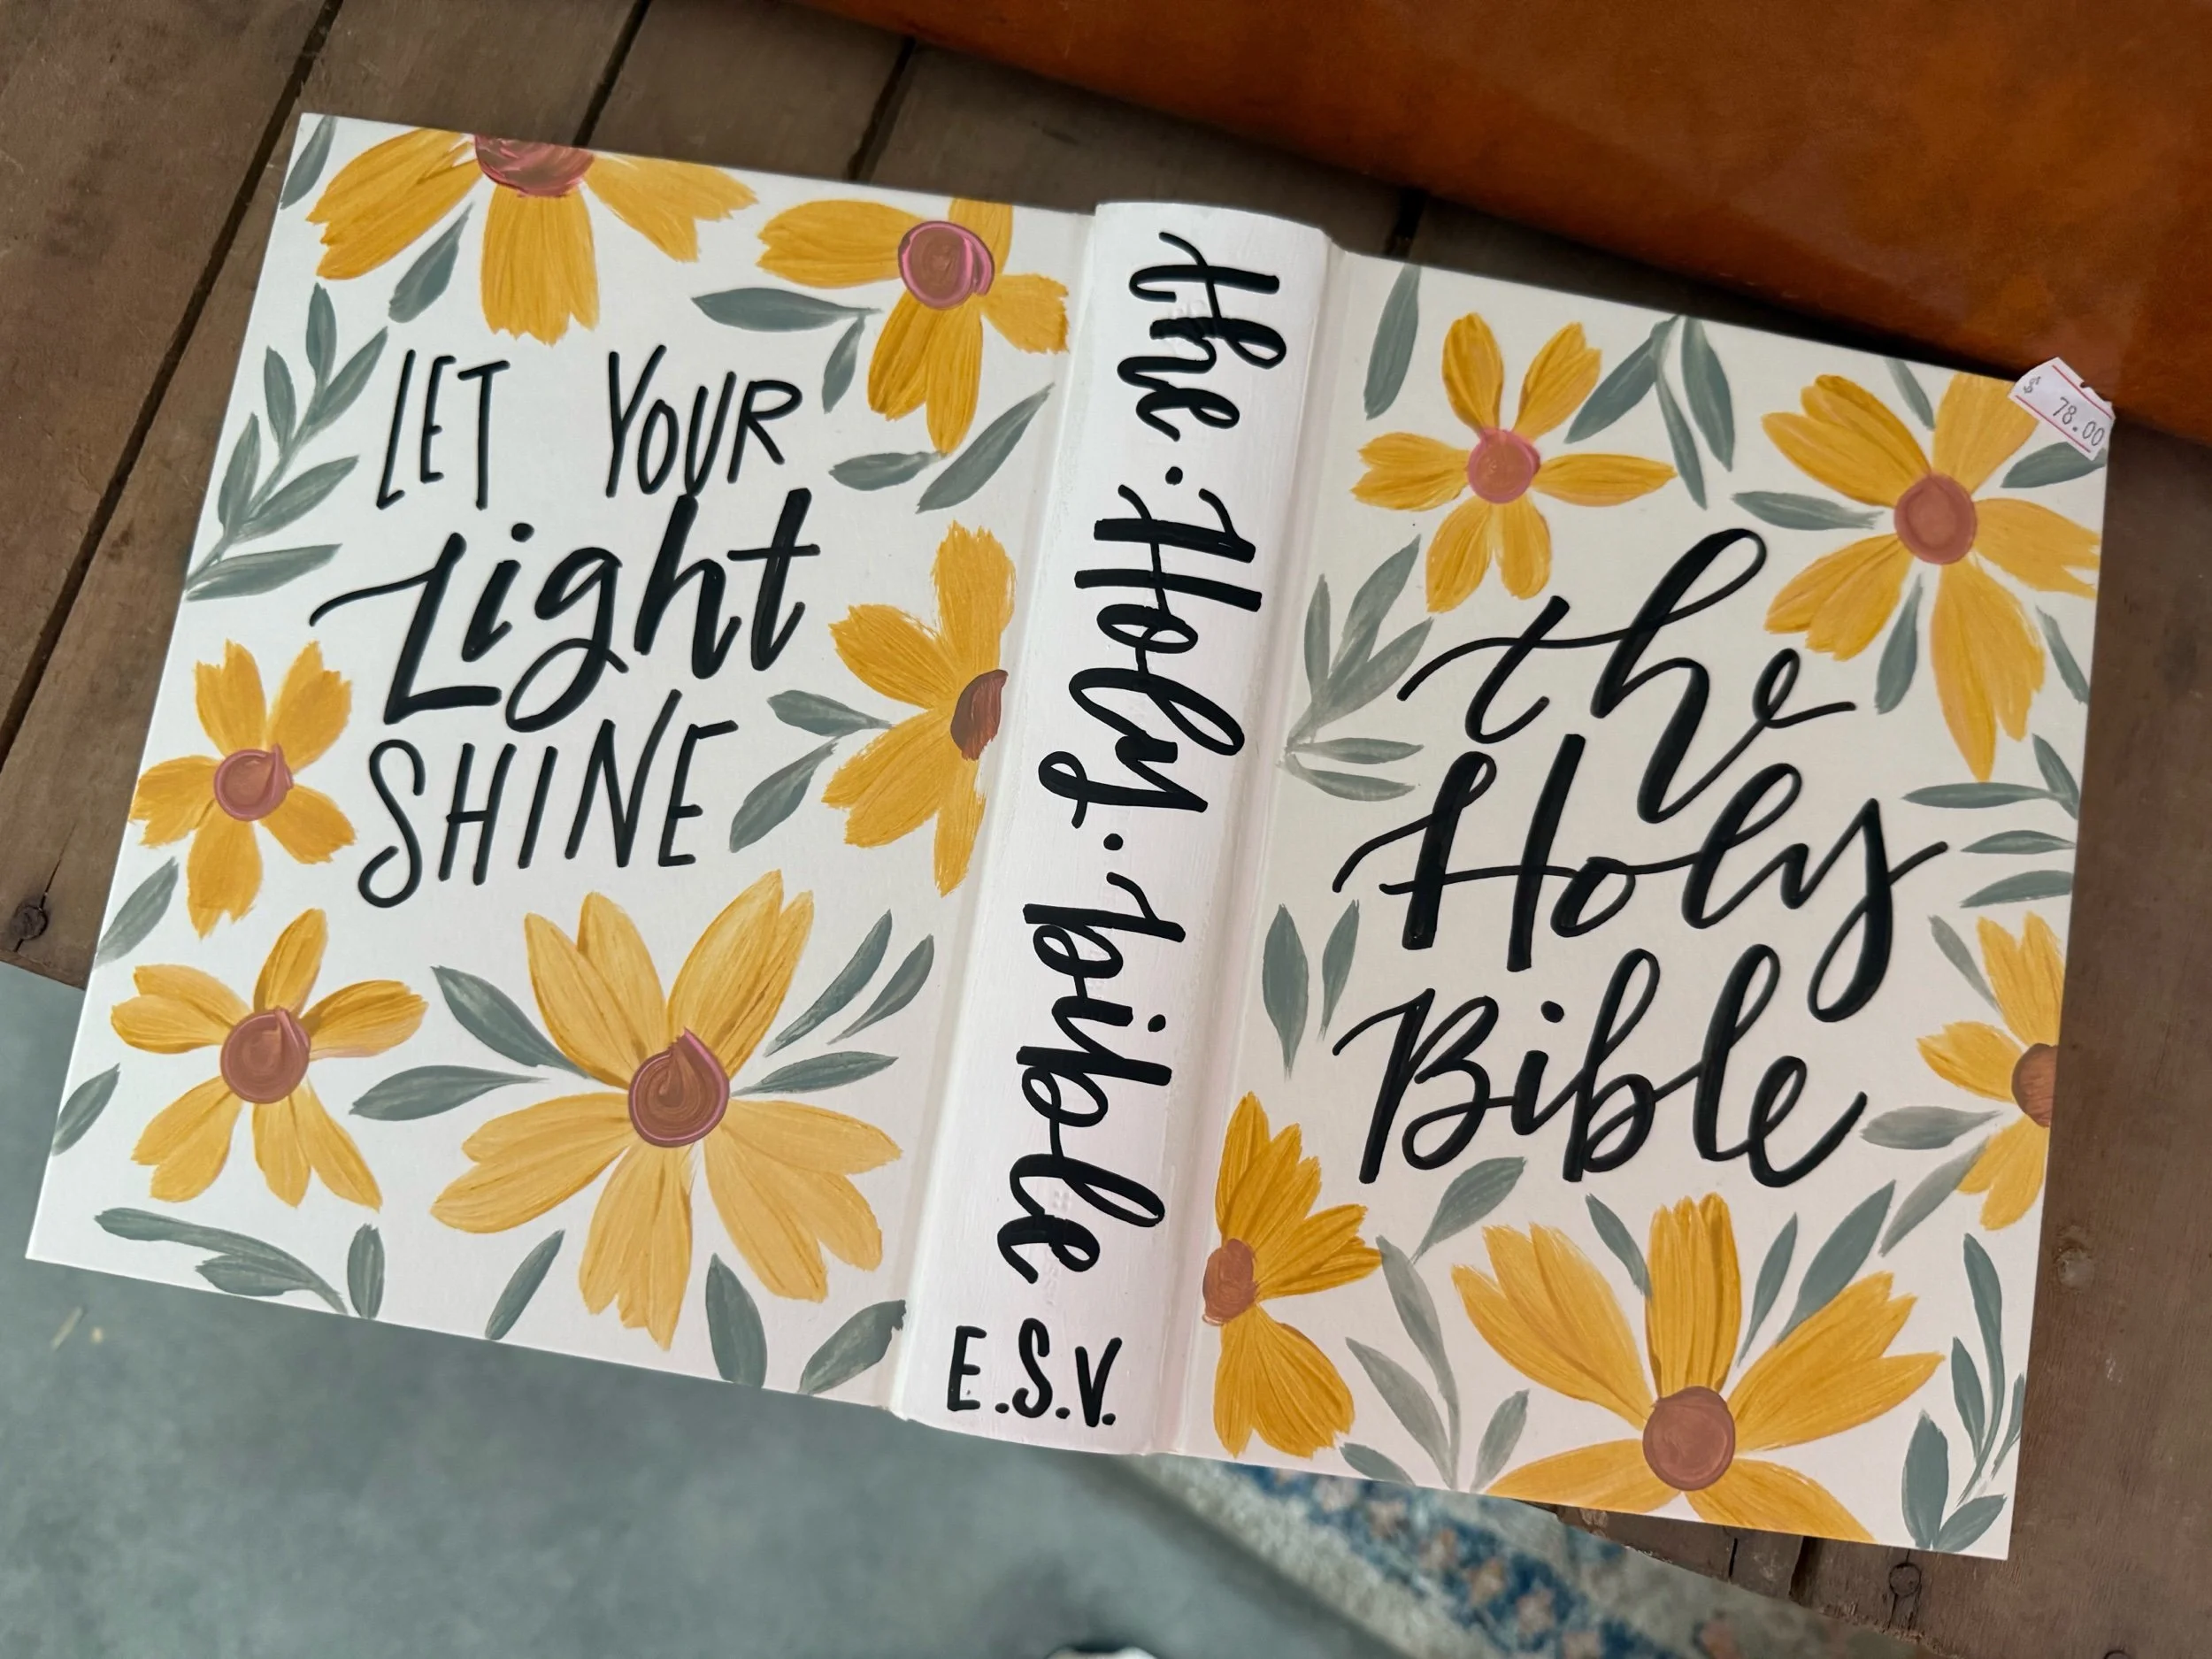 LET YOUR
Light
SHINE
the · Holy · bible
E.S.V.
the
Holy
Bible
$ 78.00